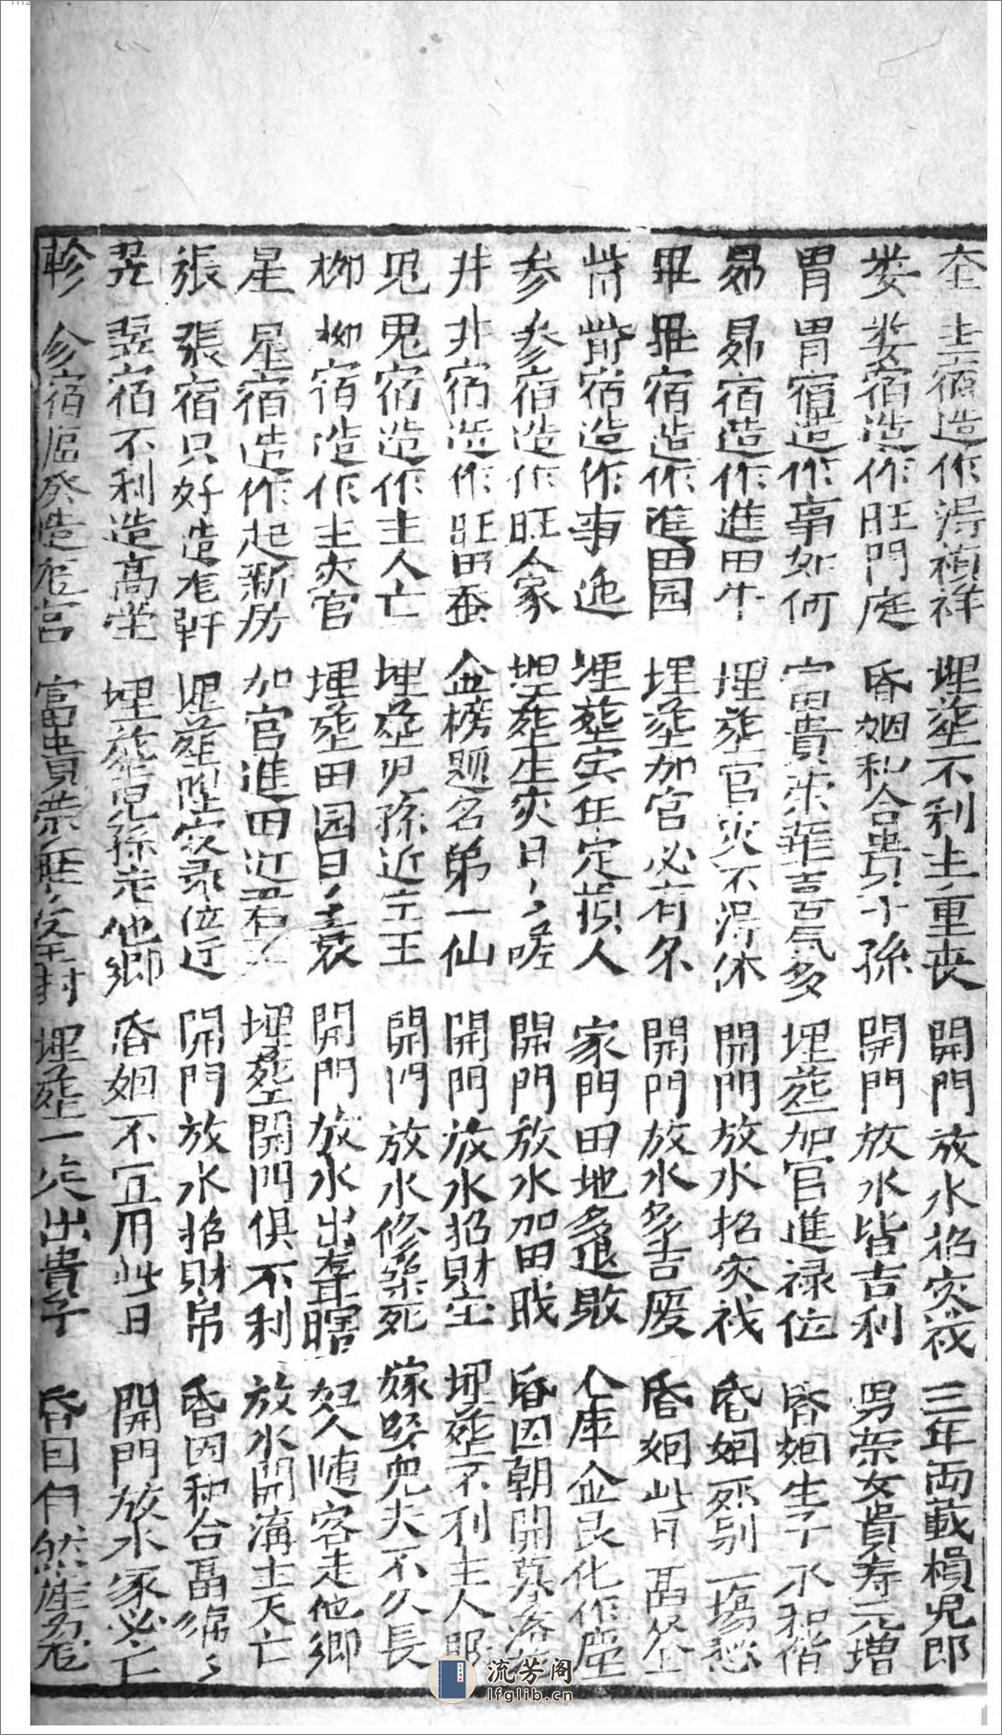 奎 圭宿造作得禎祥 埋葬不利主重丧 開門放水招灾殃 三年両載損児郎
娄 娄宿造作旺門庭 昏姻和合貴子孫 開門放水皆吉利 男荣女貴寿元增
胃 胃宿造作事如何 富貴荣華吉氣多 埋葬加官進禄位 昏姻生子永和偕
昴 昴宿造作進田牛 埋葬官灾不得休 開門放水招灾殃 昏姻死别一塲愁
畢 畢宿造作進田园 埋葬加官必有名 開門放水多吉慶 昏姻此日
觜 觜宿造作事 埋葬寅年定损人 家門田地多退敗 仓庫金良化作塵
参 参宿造作旺人家 埋葬生灾日〻嗟 開門放水加田 昏因朝開暮落
井 井宿造作旺田蚕 金榜题名弟一仙 開門放水招財宝 埋葬不利主人眠
鬼 鬼宿造作主人亡 埋葬児孫近主王 開門放水修築死 嫁娶児夫不久長
柳 柳宿造作主灾官 埋葬田园日〻衰 開門放水出聋瞎 妇人随客走他鄉
星 星宿造作起新房 加官進田近君王 埋葬開門俱不利 放水開海主夭亡
張 張宿只好造奄軒 埋葬陞官录位近 開門放水招財帛 昏因和合畐綿〻
翌 翌宿不利造高堂 埋葬児孫走他鄉 昏姻不宜用此日 開門放水家必亡
軫 宿 造 宫 富貴荣 受封 埋葬一 出貴子 昏因自然
流芳阁
lfglib.cn